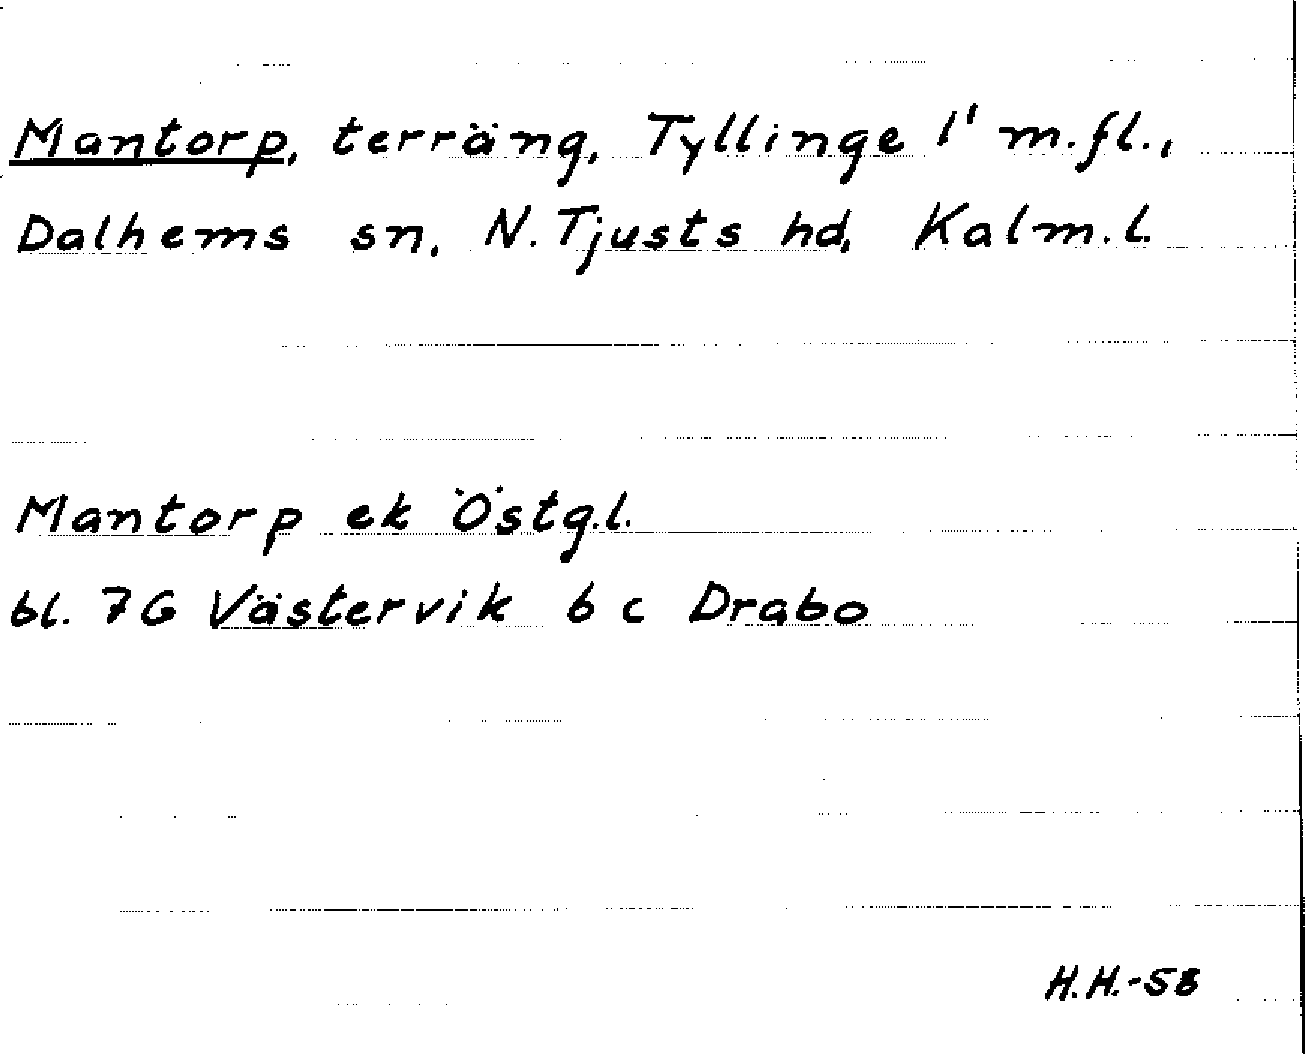 Mantorp, terräng, Tyllinge 1' m.fl.,
Dalhems sn, N. Tjusts hd, Kalm. l.
Mantorp ek Östg.l.
bl. 7G Västervik 6 c Drabo
H.H.-58